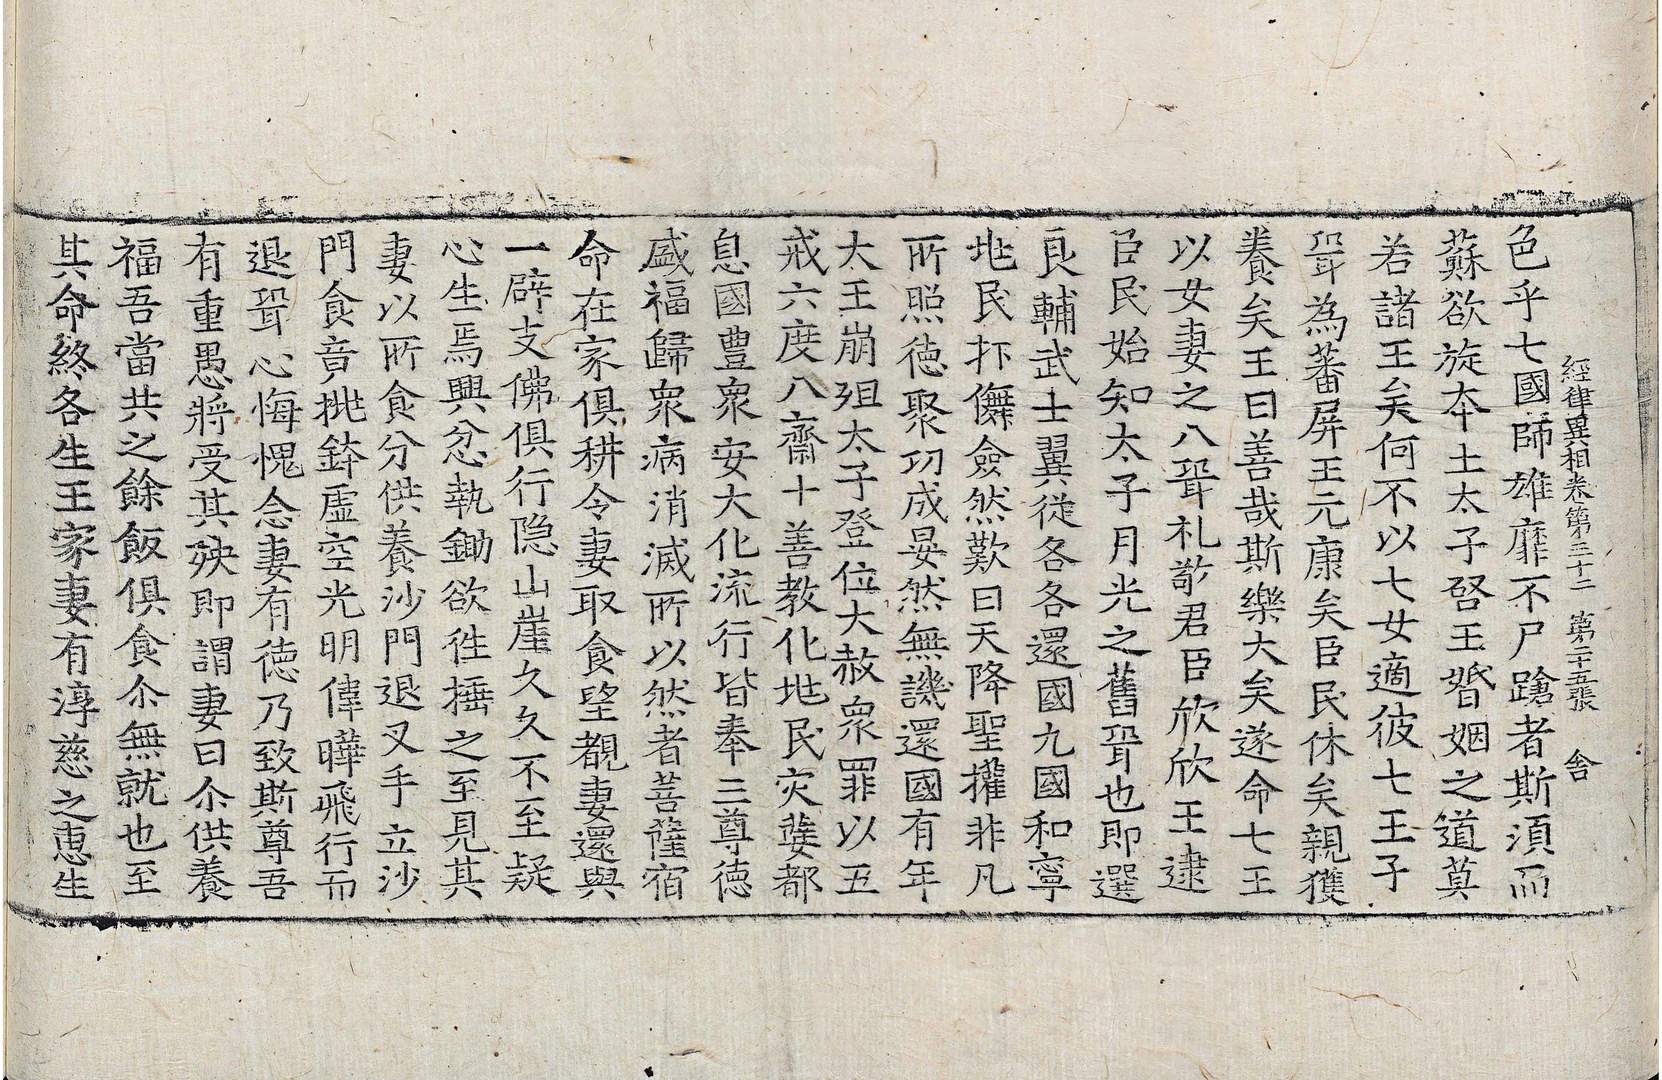 經律異相卷第三十二　第二十五張　舍
色乎七國師雄靡不尸蹌者斯湏而
蘇欲旋夲土太子啓王婚姻之道莫
若諸王矣何不以七女適彼七王子
聟為蕃屏王元康矣臣民休矣親獲
養矣王曰善哉斯樂大矣遂命七王
以女妻之八聟礼敬君臣欣欣王逮
臣民始知太子月光之舊聟也即選
良輔武士翼從各各還國九國和寧
地民抃儛僉然歎曰天降聖權非凡
所照徳聚㓛成晏然無譏還國有年
大王崩殂太子登位大赦衆罪以五
戒六度八齋十善教化地民灾孽都
息國豊衆安大化流行皆奉三尊徳
盛福歸衆病消滅所以然者菩薩宿
命在家俱耕令妻取食望覩妻還與
一辟支佛俱行隠山崖久久不至疑
心生焉興忿執鋤欲徃捶之至見其
妻以所食分供養沙門退叉手立沙
門食竟抛鉢虚空光明偉曄飛行而
退聟心悔愧念妻有徳乃致斯尊吾
有重愚將受其殃即謂妻曰尒供養
福吾當共之餘飯俱食尒無就也至
其命終各生王家妻有淳慈之恵生